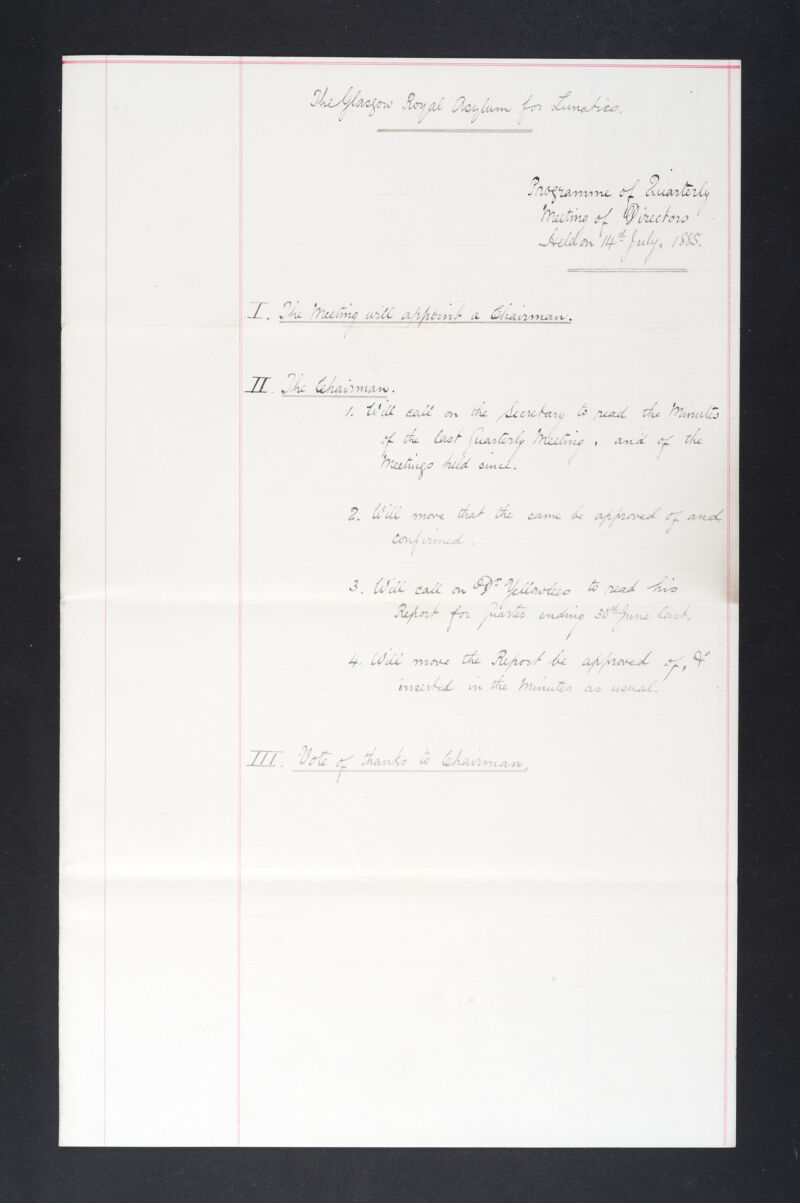 The Glasgow Royal Asylum for Lunatics.
Programme of Quarterly
Meeting of Directors
Held on 14th July, 1885.
I. The Meeting will appoint a Chairman.
II. The Chairman.
1. Will call on the Secretary to read the Minutes
of the last Quarterly Meeting, and of the
Meetings held since.
2. Will move that the same be approved of and
confirmed.
3. Will call on Dr Yellowlees to read his
Report for Quarter ending 30th June last.
4. Will move the Report be approved of, &
inserted in the Minutes as usual.
III. Vote of thanks to Chairman.